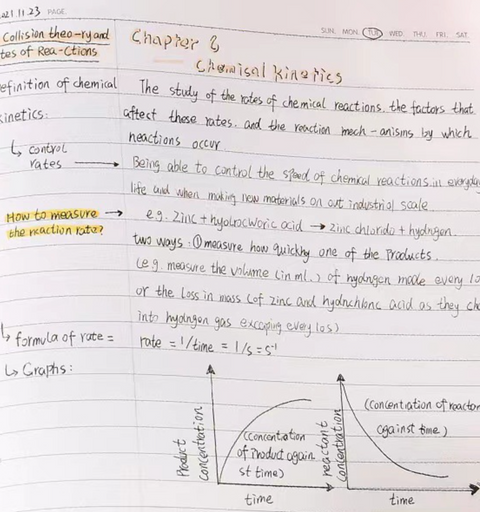 2021.11.23 PAGE.
SUN. MON. TUE. WED. THU. FRI. SAT.
Collision theo-ry and
tes of Rea-Ctions
Chapter 8
Chemisal kinetics
efinition of chemical
kinetics:
The study of the rates of chemical reactions, the factors that
affect these rates, and the reaction mech-anisms by which
reactions occur.
↳ control
rates →
Being able to control the speed of chemical reactions in everyday
life and when making new materials on an industrial scale
How to measure
the reaction rate? →
e.g. Zinc + hydrochloric acid → zinc chloride + hydrogen.
two ways: ① measure how quickly one of the Products.
(e.g. measure the volume (in ml.) of hydrogen made every 10
or the loss in mass (of zinc and hydrochloric acid as they cha
into hydrogen gas escaping every 10s)
↳ formula of rate =
rate = 1/time = 1/s = s⁻¹
↳ Graphs:
Product
concentration
(concentration
of product again
st time)
time
reactant
concentration
(concentration of reactan
against time)
time